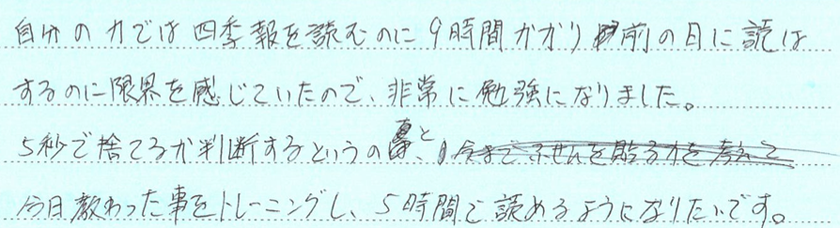 自分の力では四季報を読むのに9時間かかり前の日に読は
するのに限界を感じていたので、非常に勉強になりました。
5秒で捨てるか判断するというの事と、
今日教わった事をトレーニングし、5時間で読めるようになりたいです。